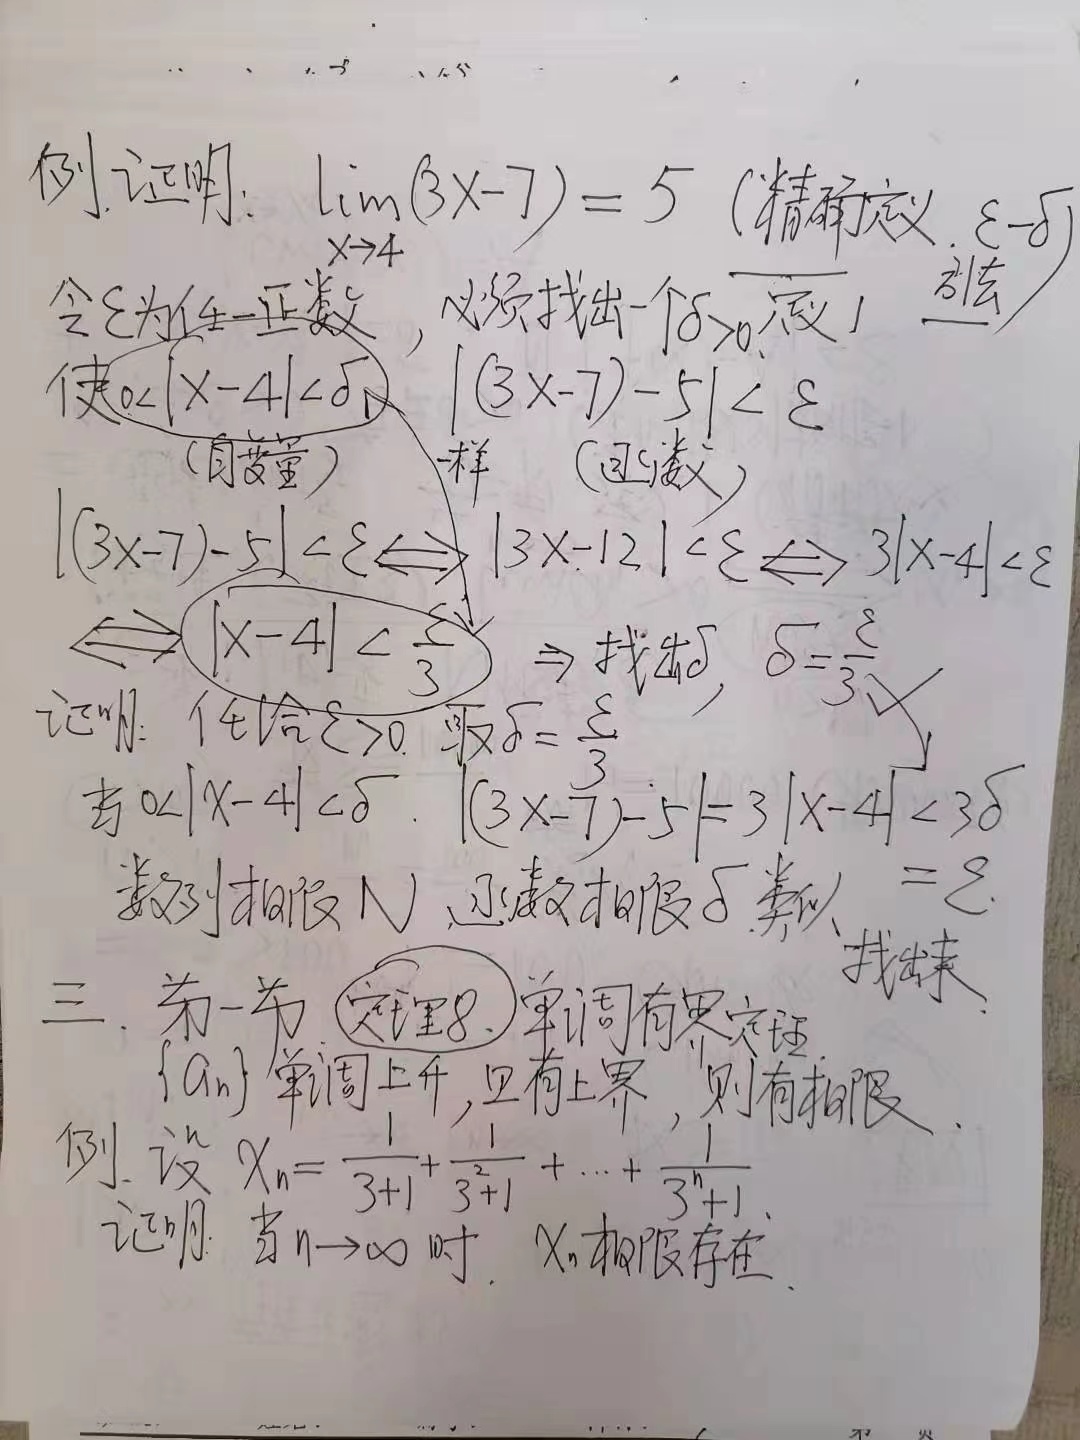 例.证明: lim(3x-7)=5 (精确定义.ε-δ)
x→4
方法
令ε为任一正数,必须找出一个δ>0.定义1
使0<|x-4|<δ, |(3x-7)-5|<ε
(自变量) 一样 (函数)
|(3x-7)-5|<ε⟺|3x-12|<ε⟺3|x-4|<ε
⟺|x-4|<ε/3 ⇒找出δ, δ=ε/3
证明: 任给ε>0. 取δ=ε/3
当0<|x-4|<δ. |(3x-7)-5|=3|x-4|<3δ
=ε.
数列极限N,函数极限δ类似、
找出来.
三. 第一节.定理8.单调有界定理.
{an}单调上升,且有上界,则有极限.
例.设 xn=1/(3+1)+1/(3²+1)+…+1/(3ⁿ+1).
证明:当n→∞时. xn极限存在.